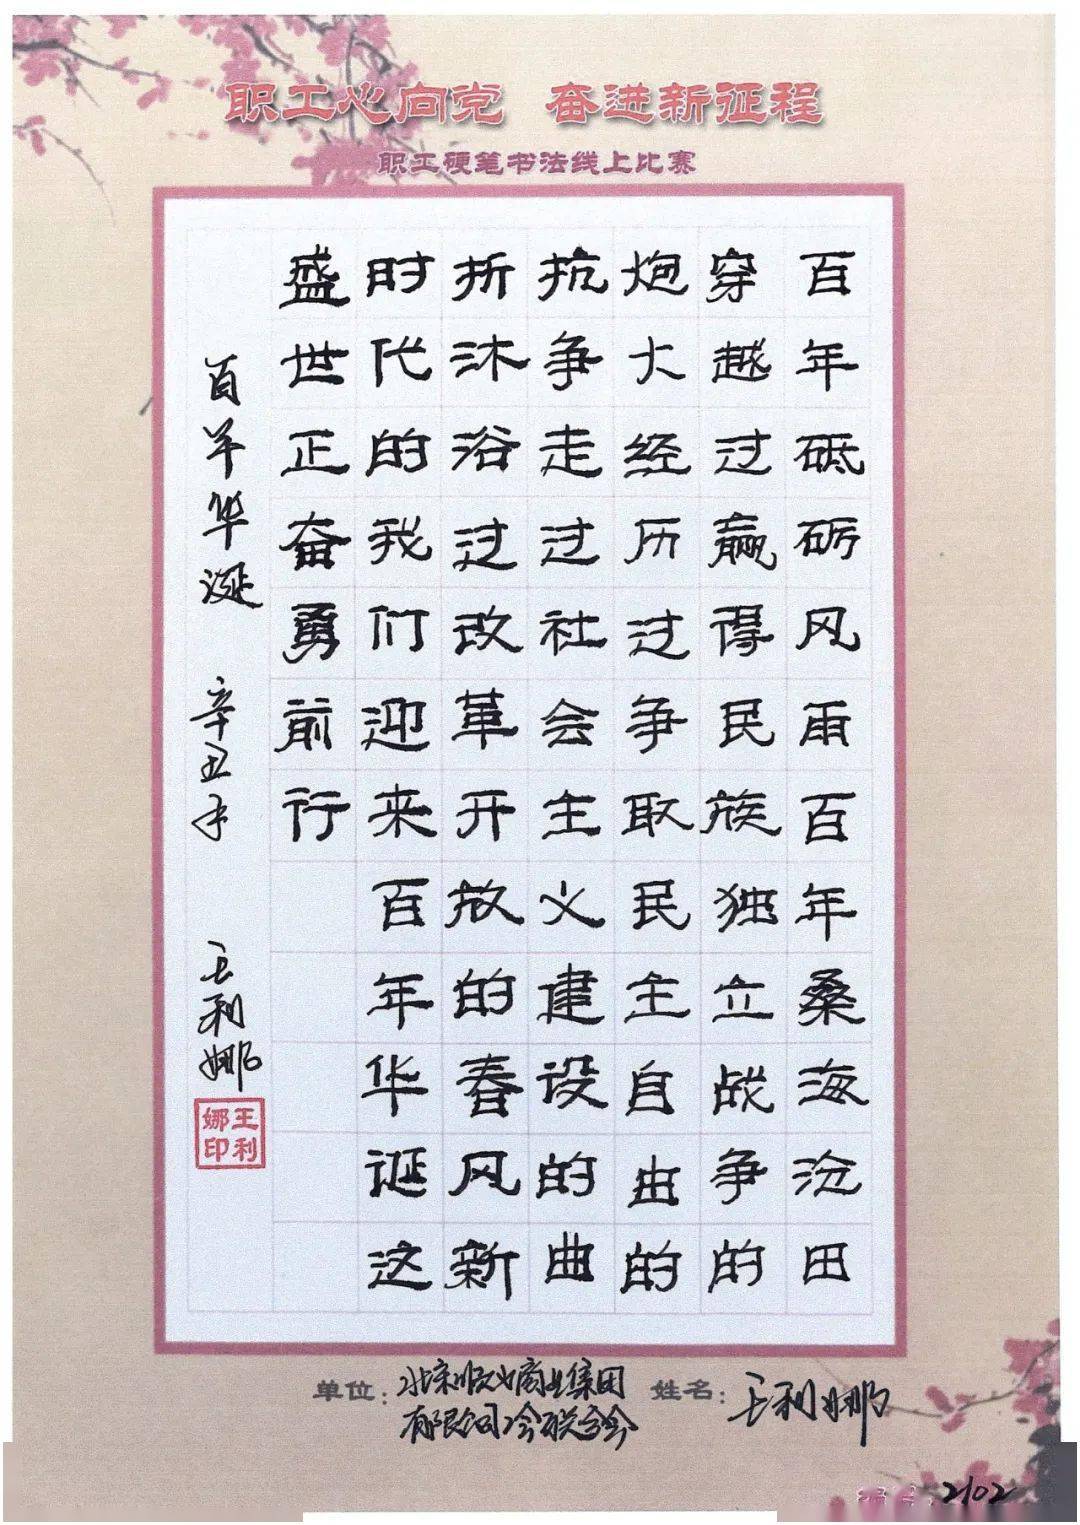 职工心向党 奋进新征程
职工硬笔书法线上比赛
百年砥砺风雨百年桑海沧田
穿越过赢得民族独立战争的
炮火经历过争取民主自由的
抗争走过社会主义建设的曲
折沐浴过改革开放的春风新
时代的我们迎来百年华诞这
盛世正奋勇前行
百年华诞 辛丑年 王利娜
王利娜印
单位：北京顺义商业集团 姓名：王利娜
有限公司冷联分会
2102